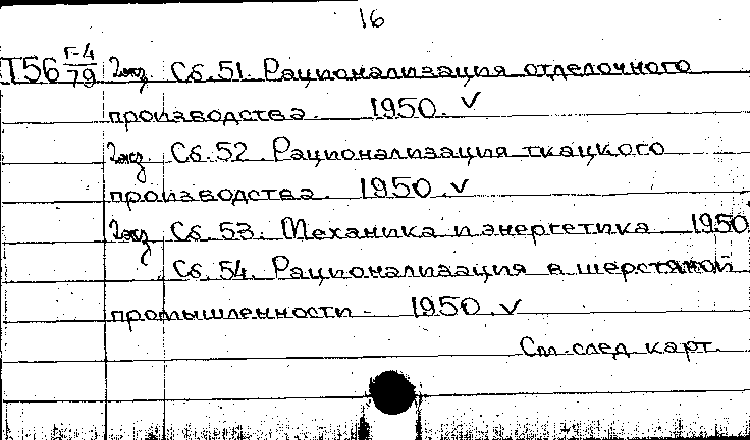 16
Т56 Г-4/79 2экз. Сб. 51. Рационализация отделочного
производства. 1950. v
2экз. Сб. 52. Рационализация ткацкого
производства. 1950. v
2экз Сб. 53. Механика и энергетика 1950
Сб. 54. Рационализация в шерстяной
промышленности - 1950. v
См. след. карт.